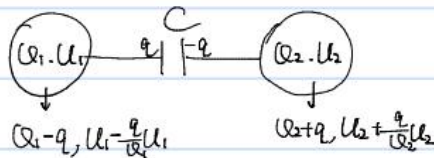 C
Q₁.U₁ q -q Q₂.U₂
Q₁-q, U₁-q/Q₁ U₁ Q₂+q, U₂+q/Q₂ U₂